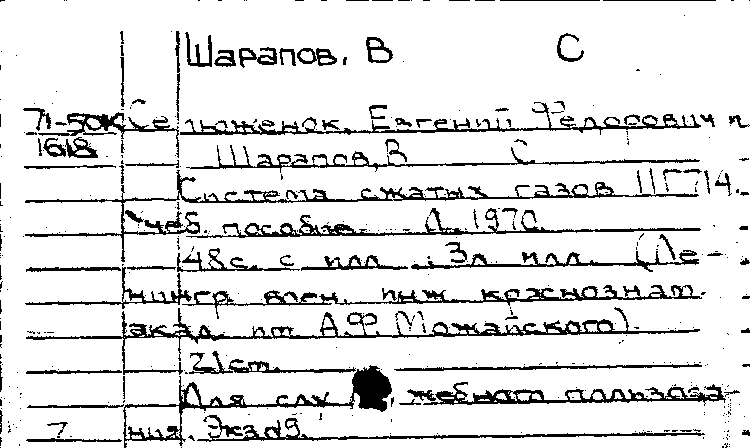 Шарапов, В С
71-50К Селюженок, Евгений Федорович и
1618 Шарапов, В С
Система сжатых газов 11Г714.
Учеб. пособие. Л. 1970.
48с. с илл., 3л илл. (Ле-
нингр. воен. инж. краснознам.
акад. им А.Ф. Можайского).
21см.
Для служебного пользова-
7 ния. Экз